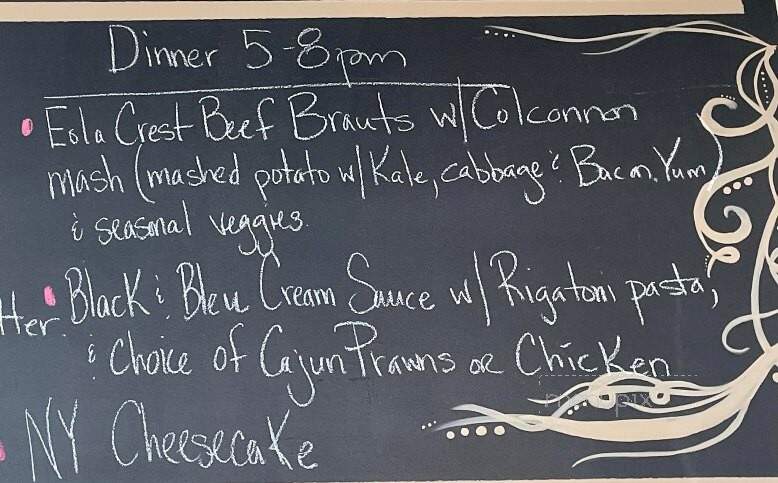 Dinner 5-8pm
• Eola Crest Beef Brauts w/ Colcannon
mash (mashed potato w/ Kale, cabbage & Bacon. Yum)
& seasonal veggies.
• Black & Bleu Cream Sauce w/ Rigatoni pasta,
& Choice of Cajun Prawns or Chicken
• NY Cheesecake